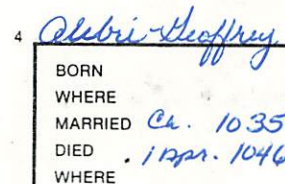 4 Albri-Geoffrey
BORN
WHERE
MARRIED Ca. 1035
DIED . 1 Apr. 1046
WHERE